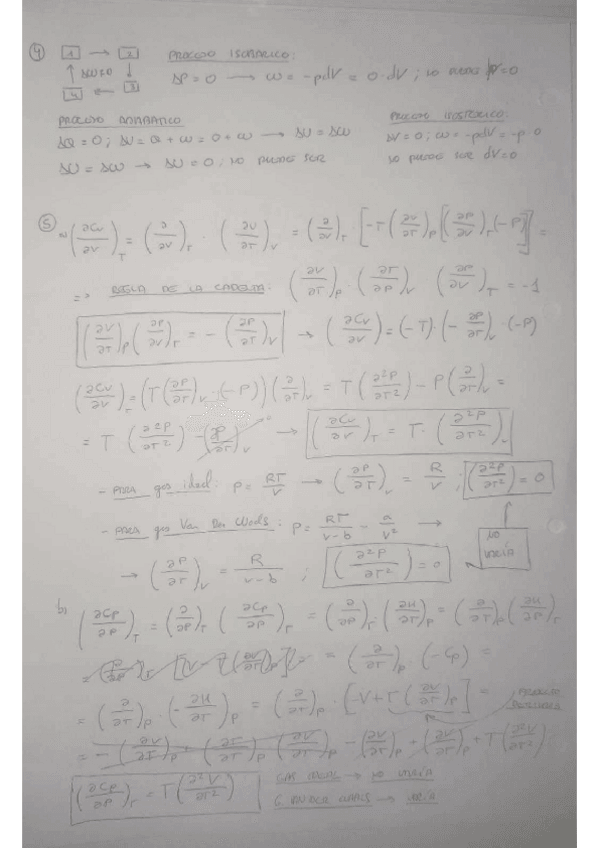 4) 1 → 2 PROCESO ISOBARICO:
↑ ΔU=0 ↓ ΔP = 0 → ω = -pdV = 0·dV ; no puede
4 ← 3
PROCESO ADIABATICO PROCESO ISOSTERICO:
ΔQ = 0 ; ΔU = Q + ω = 0 + ω → ΔU = Δω ΔV = 0 ; ω = -pdV = -p 0
ΔU = Δω → ΔU = 0 ; no puede ser no puede ser dV=0
5) a) (∂Cv/∂V)_T = (∂/∂V)_T · (∂U/∂T)_V = (∂/∂V)_T · [-T(∂V/∂T)_P [(∂P/∂V)_T (-P)]] =
=> REGLA DE LA CADENA: (∂V/∂T)_P · (∂T/∂P)_V (∂P/∂V)_T = -1
(∂V/∂T)_P (∂P/∂V)_T = -(∂P/∂T)_V → (∂Cv/∂V) = (-T)·(-∂P/∂T)_V · (-P)
(∂Cv/∂V)_T = (T(∂P/∂T)_V · (-P)) (∂/∂T)_V = T(∂²P/∂T²) - P(∂/∂T)_V =
= T (∂²P/∂T²) - (∂P/∂T)_V → (∂Cv/∂V)_T = T·(∂²P/∂T²)_V
- PARA gas ideal: P = RT/V → (∂P/∂T)_V = R/V ; (∂²P/∂T²) = 0
- PARA gas Van Der Waals: P = RT/(V-b) - a/V² → no varía
→ (∂P/∂T)_V = R/(V-b) ; (∂²P/∂T²) = 0
b) (∂Cp/∂P)_T = (∂/∂P)_T (∂Cp/∂P)_T = (∂/∂P)_T (∂H/∂T)_P = (∂/∂T)_P (∂H/∂P)_T
= (∂/∂T)_P · (-Cp) =
= (∂/∂T)_P · (-∂H/∂T)_P = (∂/∂T)_P · [-V+T(∂V/∂T)_P] =
= -(∂V/∂T)_P + (∂T/∂T)_P (∂V/∂T)_P - (∂V/∂T)_P + (∂V/∂T)_P + T(∂²V/∂T²)
(∂Cp/∂P)_T = T(∂²V/∂T²) GAS IDEAL → NO VARÍA
G. VAN DER WAALS → VARÍA